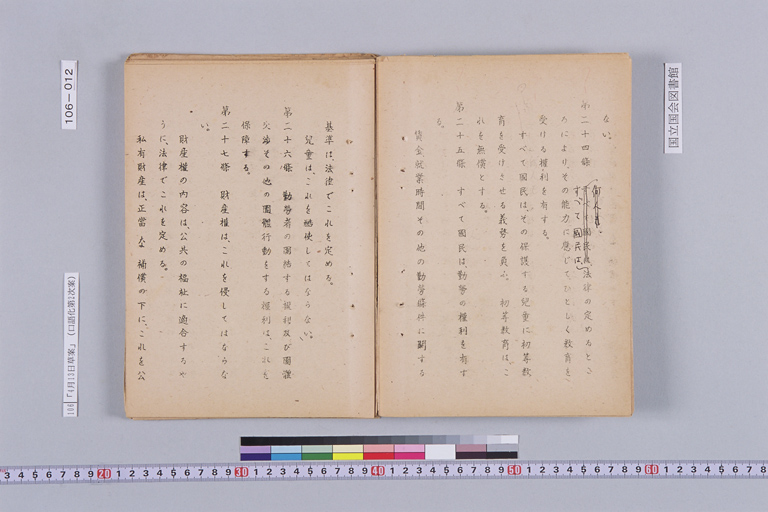 国立国会図書館
ない。
第二十四條 すべて國民は、法律の定めるところにより、その能力に應じてひとしく教育を
受ける權利を有する。
すべて國民は、その保護する兒童に初等教
育を受けさせる義務を負ふ。初等教育は、こ
れを無償とする。
第二十五條 すべて國民は、勤勞の權利を有す
る。
賃金就業時間その他の勤勞條件に關する
基準は、法律でこれを定める。
兒童は、これを酷使してはならない。
第二十六條 勤勞者の團結する權利及び團體
交渉その他の團體行動をする權利は、これを
保障する。
第二十七條 財産權は、これを侵してはならな
い。
財産權の内容は、公共の福祉に適合するや
うに、法律でこれを定める。
私有財産は、正當な補償の下に、これを公
106-012
106 「4月13日草案」(口語化第2次案)